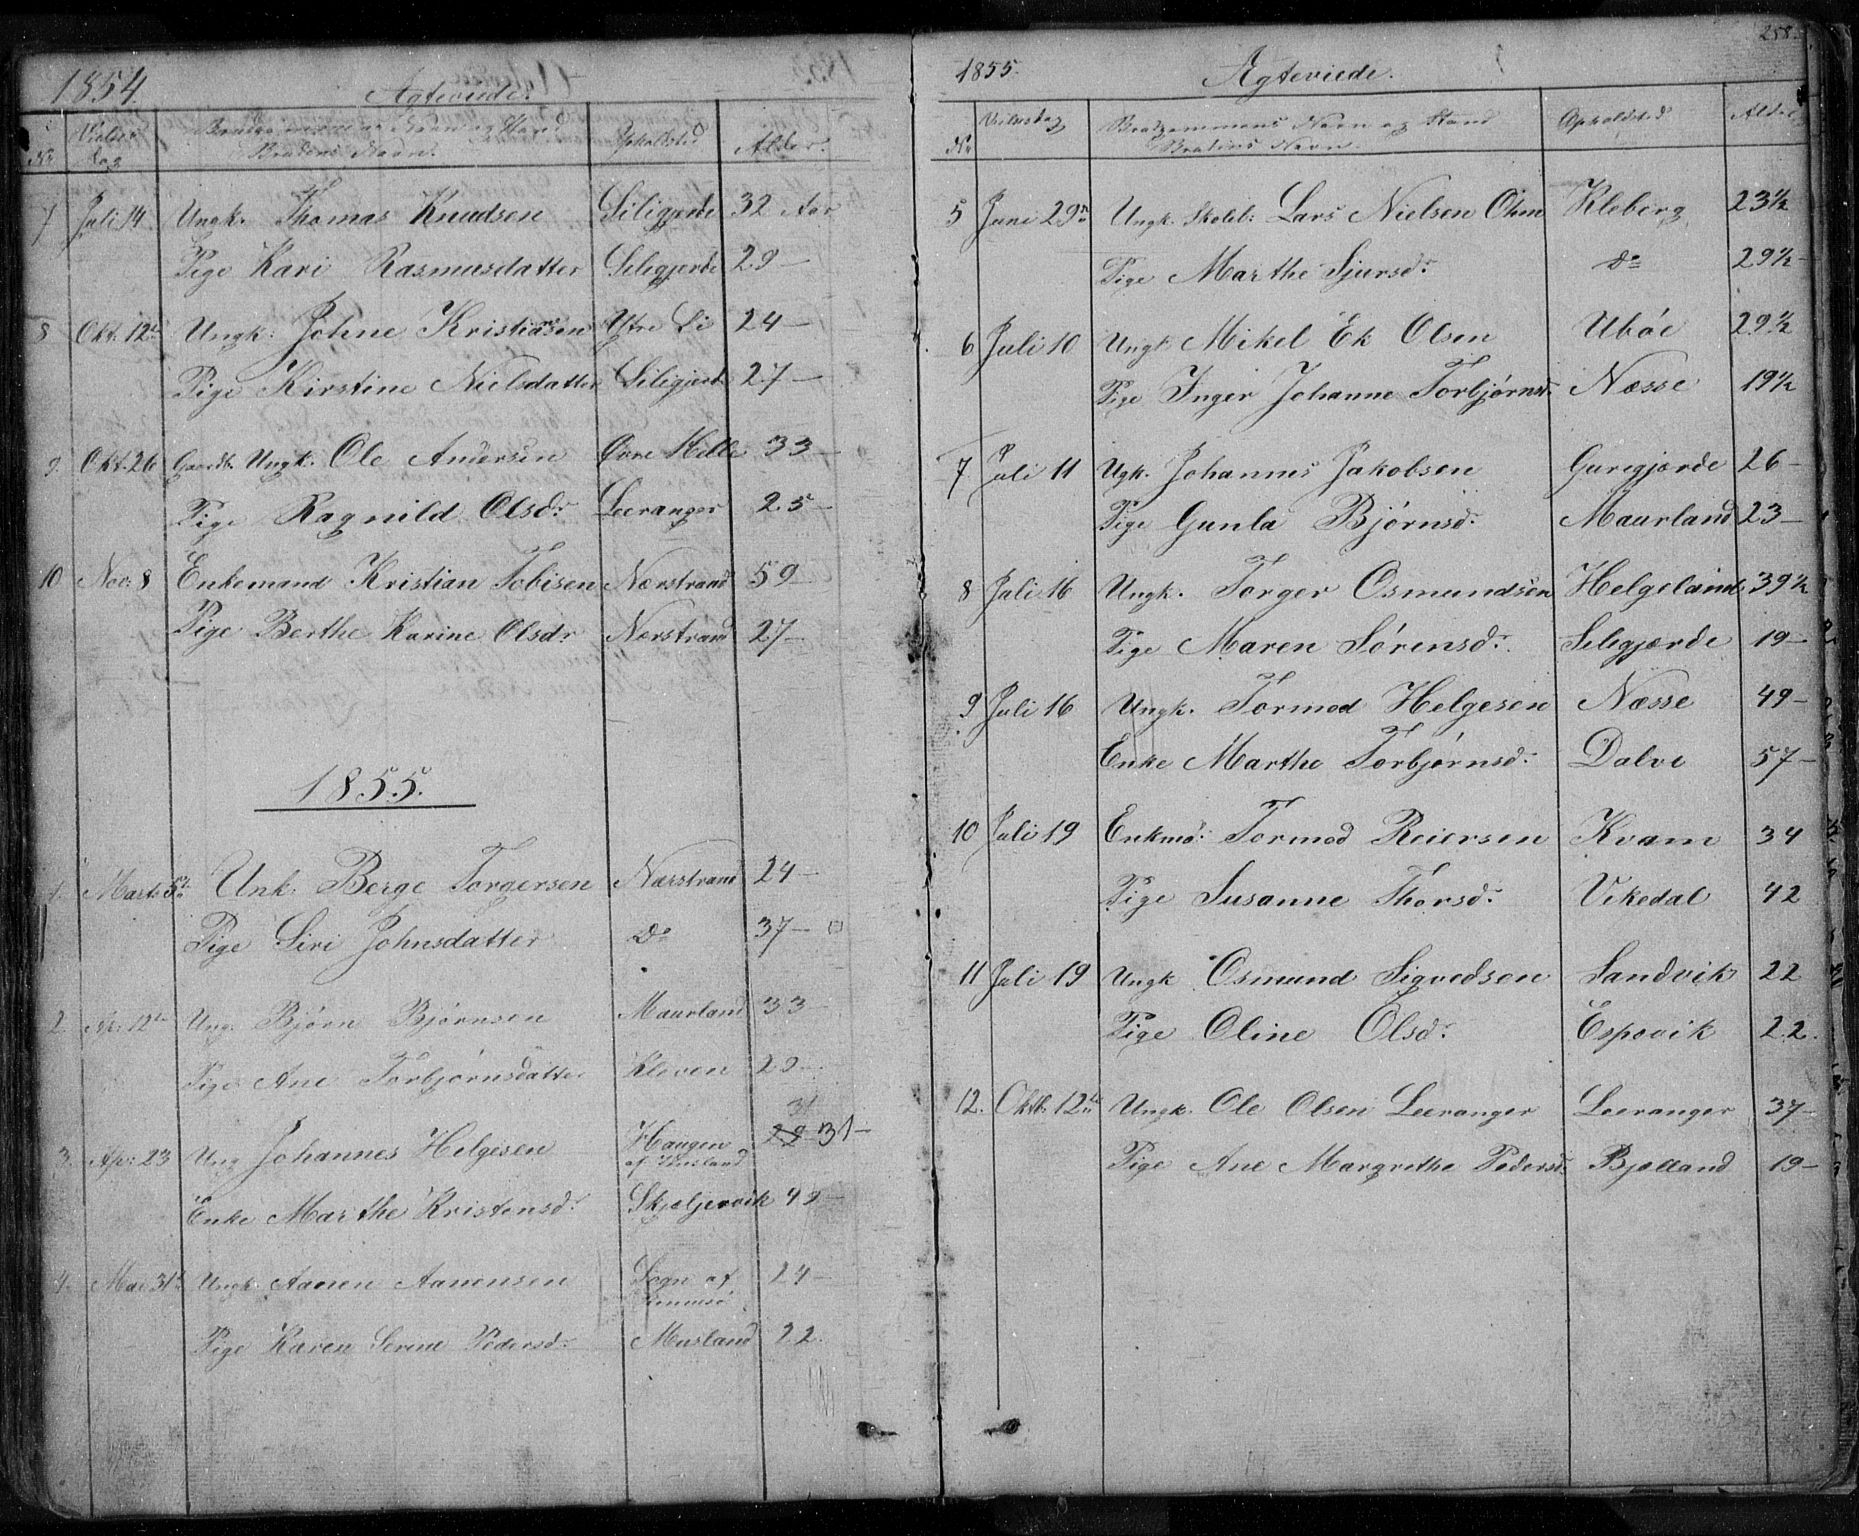 1854.
Ægteviede.
No
Vielses dag
Brudgommens Navn og Stand
Brudens Navn.
Opholdsted
Alder.
7 Juli 14 Ungk. Thomas Knudsen Siligjerde 32 Aar
Pige Kari Rasmusdatter Siligjerde 29 —
8 Okt. 12te Ungk. Johne Kristiansen Ytre Li 24 —
Pige Kirstine Nielsdatter Siligjerd 27 —
9. Okt. 26 Gaardb. Ungk. Ole Andersen Øvre Helle 33 —
Pige Ragnild Olsdr Leeranger 25 —
10 Nov: 8 Enkemand Kristian Tobisen Nærstrand 59 —
Pige Berthe Karine Olsdr Nærstrand 27 —
1855.
1. Marts 5te Unk. Berge Torgersen Nærstrand 24 —
Pige Siri Johnsdatter Do 37 —
2. Ap: 12te Ung. Bjørn Bjørnsen Maurland 33 —
Pige Ane Torbjørnsdatter Kleven 29 —
3. Ap: 23 Ung Johannes Helgesen Haugen 29 31 31 —
Enke Marthe Kristensdr Skjeljervik 49 —
4. Mai 31te Ungk. Aanen Aanensen Sogn af 24 —
Pige Karen Serine Pedersdr Musland 22.
258.
1855.
Ægteviede.
No
Vielsesdag
Brudgommens Navn og Stand
Brudens Navn.
Opholdsted
Alder
5 Juni 29de Ungk. Skolel: Lars Nielsen Ohm Kleberg 23½
Pige Marthe Sjursdr Do 29½ —
6 Juli 10 Ungk Mikel Ek Olsen Ubøe 29½
Pige Inger Johanne Torbjørnsd. Næsse 19½
7. Juli 11 Ugk. Johannes Jakobsen Guregjærde 26 —
Pige Gunla Bjørnsdr Maurland 23 —
8 Juli 16 Ungk. Torger Osmundsen Helgeland 39½
Pige Maren Sørensdr Seligjærde 19 —
9. Juli 16 Ungk. Tormod Helgesen Næsse 49 —
Enke Marthe Torbjørnsdr Dalve 57 —
10 Juli 19 Enkmd: Tormod Reiersen Kvam 34
Pige Susanne Thorsdr Vikedal 42
11 Juli 19 Ungk Osmund Sigvedsen Sandvik 22
Pige Oline Olsdr Espevik 22.
12. Oktb. 12te Ungk. Ole Olsen Leeranger Leeranger 37 —
Pige Ane Margrethe Pedersd. Bjelland 19 —